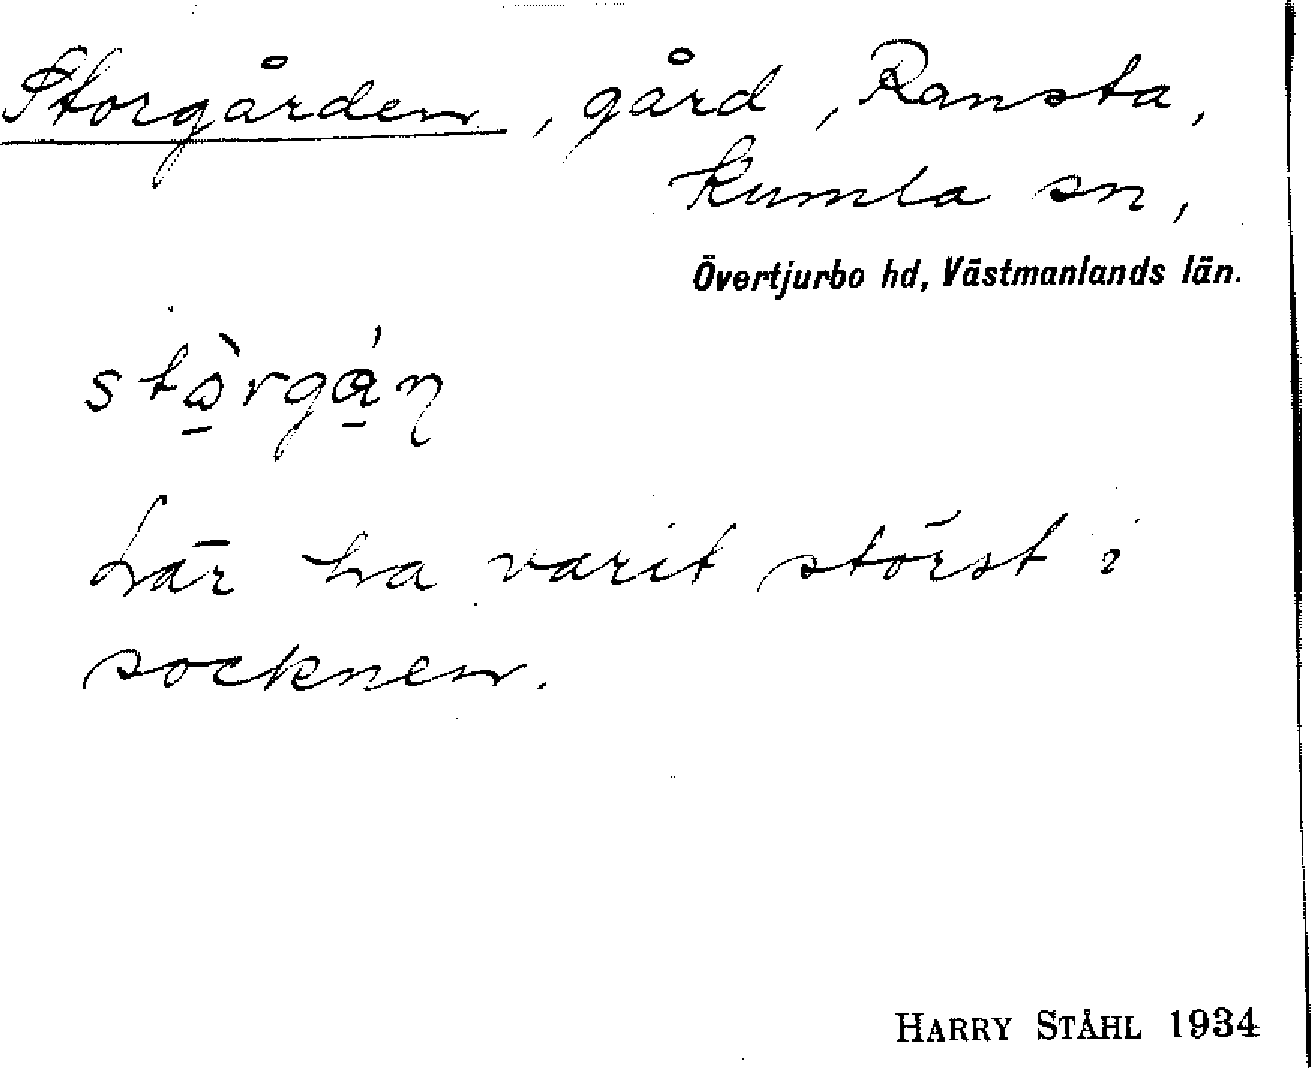 Storgården, gård, Ransta,
Kumla sn,
Övertjurbo hd, Västmanlands län.
stò̱rgá̱ɳ
Lär ha varit störst i
socknen.
HARRY STÅHL 1934